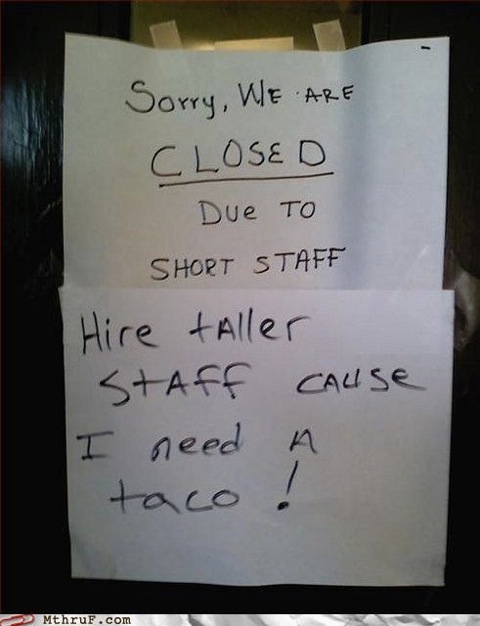 Sorry, WE ARE
CLOSED
DUE TO
SHORT STAFF
Hire tAller
STAFF CAUSE
I need A
taco!
MthruF.com